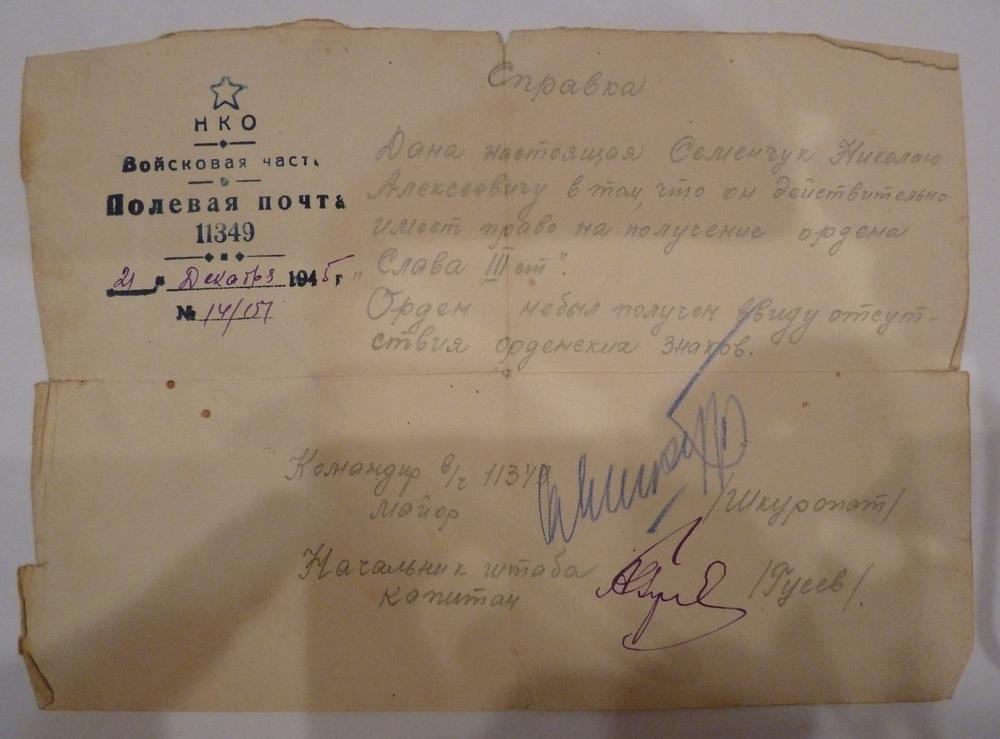 НКО
Войсковая часть
Полевая почта
11349
21 " Декабря 1945 г
№ 14/151
Справка
Дана настоящая Семенчук Николаю
Алексеевичу в том, что он действительно
имеет право на получение ордена
"Слава III ст".
Орден небыл получен ввиду отсут-
ствия орденских знаков.
Командир в/ч 11349
майор /Шкуропат/
Начальник штаба
капитан /Гусев/.